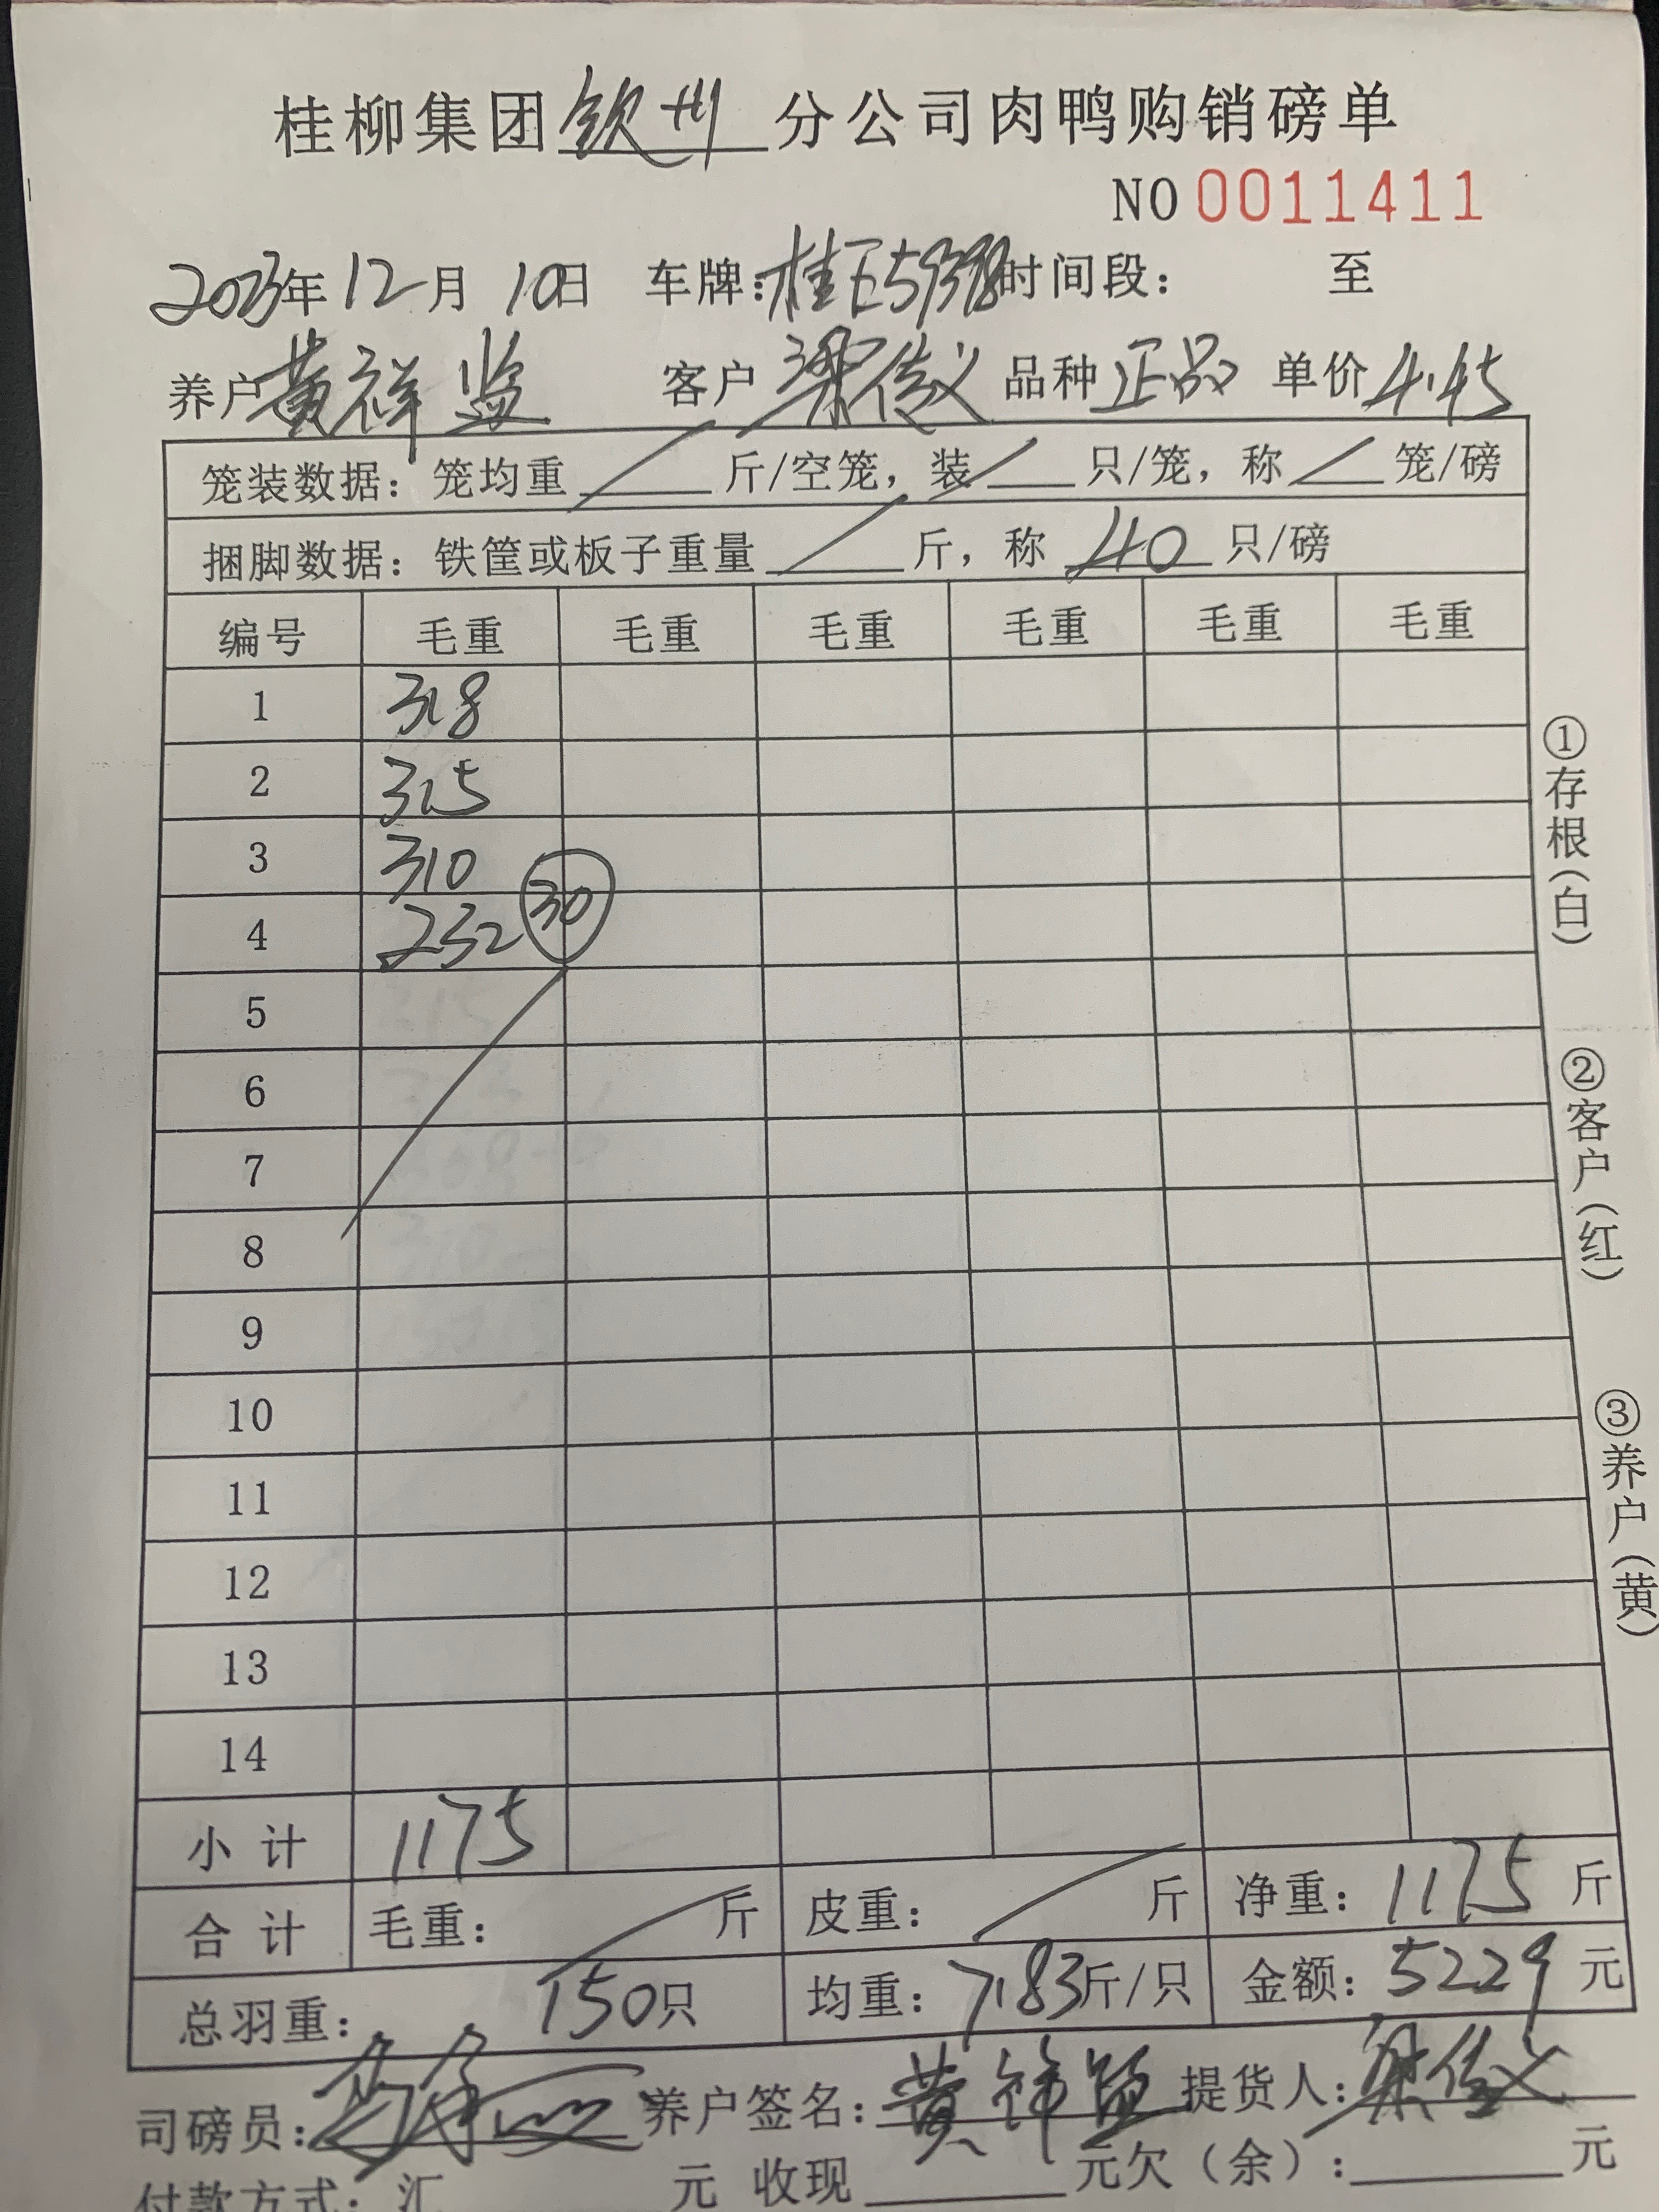 桂柳集团钦州分公司肉鸭购销磅单
NO 0011411
2023年12月10日 车牌：桂E59398时间段： 至
养户黄祥监 客户梁信义 品种正品 单价4.45
笼装数据：笼均重 斤/空笼，装 只/笼，称 笼/磅
捆脚数据：铁筐或板子重量 斤，称 40 只/磅
编号 毛重 毛重 毛重 毛重 毛重 毛重
1 318
2 315
3 310
4 232 30
5
6
7
8
9
10
11
12
13
14
小计 1175
合计 毛重： 斤 皮重： 斤 净重：1175斤
总羽重：150只 均重：7.83斤/只 金额：5229元
司磅员： 养户签名：黄 提货人：梁信义
付款方式：汇 元 收现 元欠（余）： 元
①存根（白）
②客户（红）
③养户（黄）